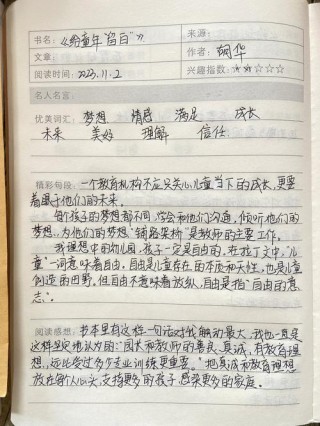 书名:《给童年"留白"》 来源:
文章: 作者:胡华
阅读时间:2023.11.2 兴趣指数:★★☆☆☆
名人名言:
优美词汇: 梦想 情感 满足 成长
未来 美好 理解 信任
精彩句段: 一个教育机构不应只关心儿童当下的成长,更要
着眼于他们的未来。
每个孩子的梦想都不同,学会和他们沟通,倾听他们的
梦想,为他们的梦想"铺路架桥"是教师的主要工作。
我理想中的幼儿园,孩子一定是自由的,在拉丁文中,"儿
童"一词意味着自由,自由是儿童存在的本质和天性,也是儿童
创造的田野。但自由不意味着放纵,自由是指"自由的意
志"。
阅读感想: 书本里有这样一句话对我触动最大,我也一直是
这样坚定地认为的:"园长和教师的善良、真诚,有教育理
想,远比受过多少专业训练更重要。"把真诚和教育理想
放在每个人心头,支持更多的孩子,感染更多的家庭。